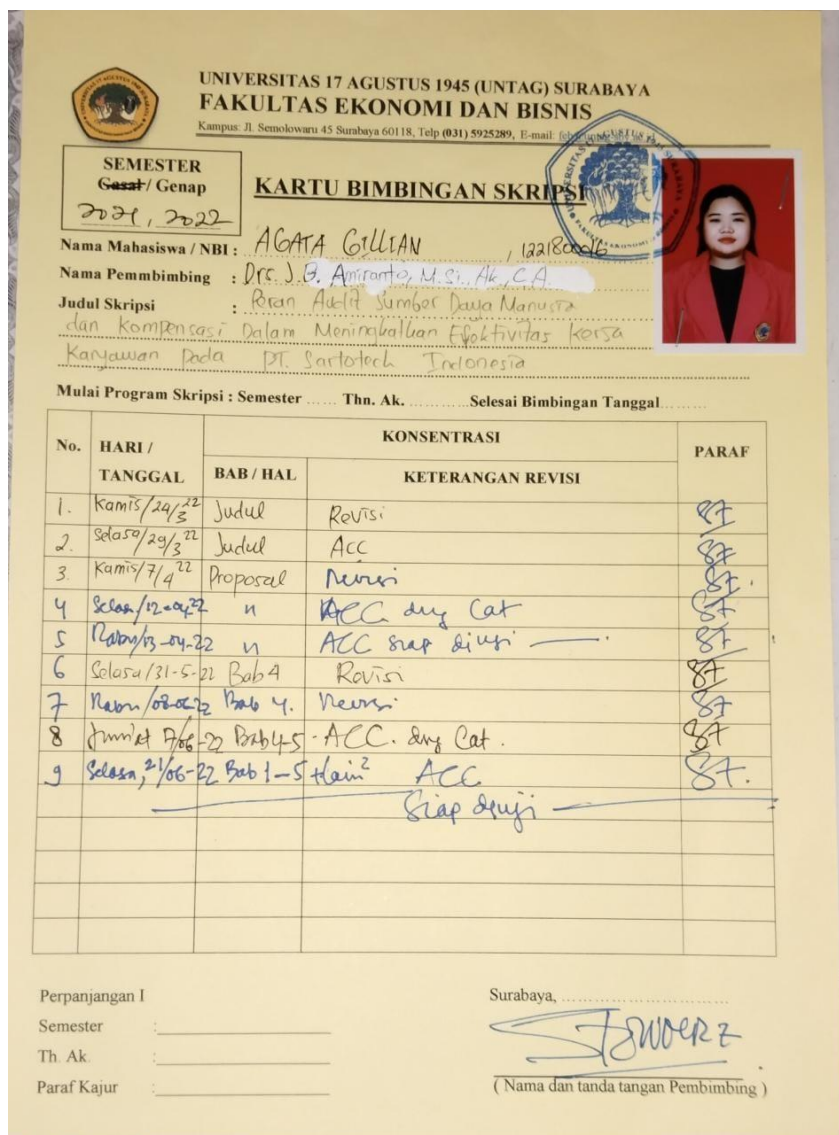 UNIVERSITAS 17 AGUSTUS 1945 (UNTAG) SURABAYA
FAKULTAS EKONOMI DAN BISNIS
Kampus: Jl. Semolowaru 45 Surabaya 60118, Telp (031) 5925289, E-mail:
SEMESTER
Gasal / Genap
2021, 2022
KARTU BIMBINGAN SKRIPSI
Nama Mahasiswa / NBI : AGATA GILLIAN , 1221800016
Nama Pemmbimbing : Drs. J.B. Amiranto, M.Si., Ak, C.A
Judul Skripsi : Peran Audit Sumber Daya Manusia
dan Kompensasi Dalam Meningkatkan Efektivitas Kerja
Karyawan Pada PT. Sartotech Indonesia
Mulai Program Skripsi : Semester ...... Thn. Ak. ............ Selesai Bimbingan Tanggal.........
No. HARI / TANGGAL KONSENTRASI PARAF
BAB / HAL KETERANGAN REVISI
1. Kamis/24/3 22 Judul Revisi
2. Selasa/29/3 22 Judul Acc
3. Kamis/7/4 22 Proposal Revisi
4 Selasa/12-04-22 " ACC dng Cat
5 Rabu/13-04-22 " ACC siap diuji
6 Selasa/31-5-22 Bab 4 Revisi
7 Rabu/08-06-22 Bab 4. Revisi
8 Jum'at /06-22 Bab 4-5 - ACC. dng Cat.
9 Selasa, 21/06-22 Bab 1-5 + lain² ACC
Siap diuji
Perpanjangan I
Surabaya, ..............................
Semester :
Th. Ak. :
Paraf Kajur :
( Nama dan tanda tangan Pembimbing )